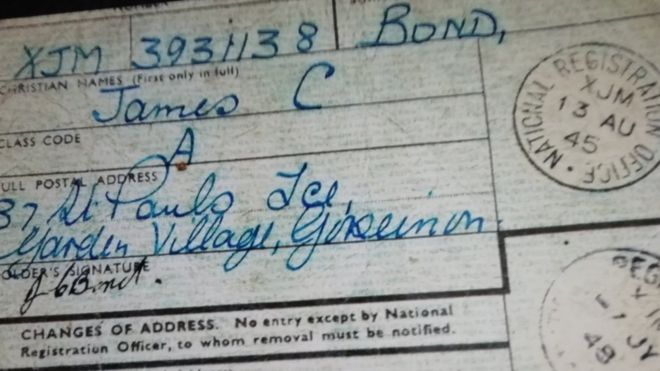 XJM 3931138 BOND,
CHRISTIAN NAMES (First only in full)
James C
CLASS CODE
A
FULL POSTAL ADDRESS
37 St Pauls Tce,
Garden Village, Gorseinon.
HOLDER'S SIGNATURE
J C Bond.
CHANGES OF ADDRESS. No entry except by National
Registration Officer, to whom removal must be notified.
NATIONAL REGISTRATION OFFICE
XJM
13 AU
45
REG
JY
49